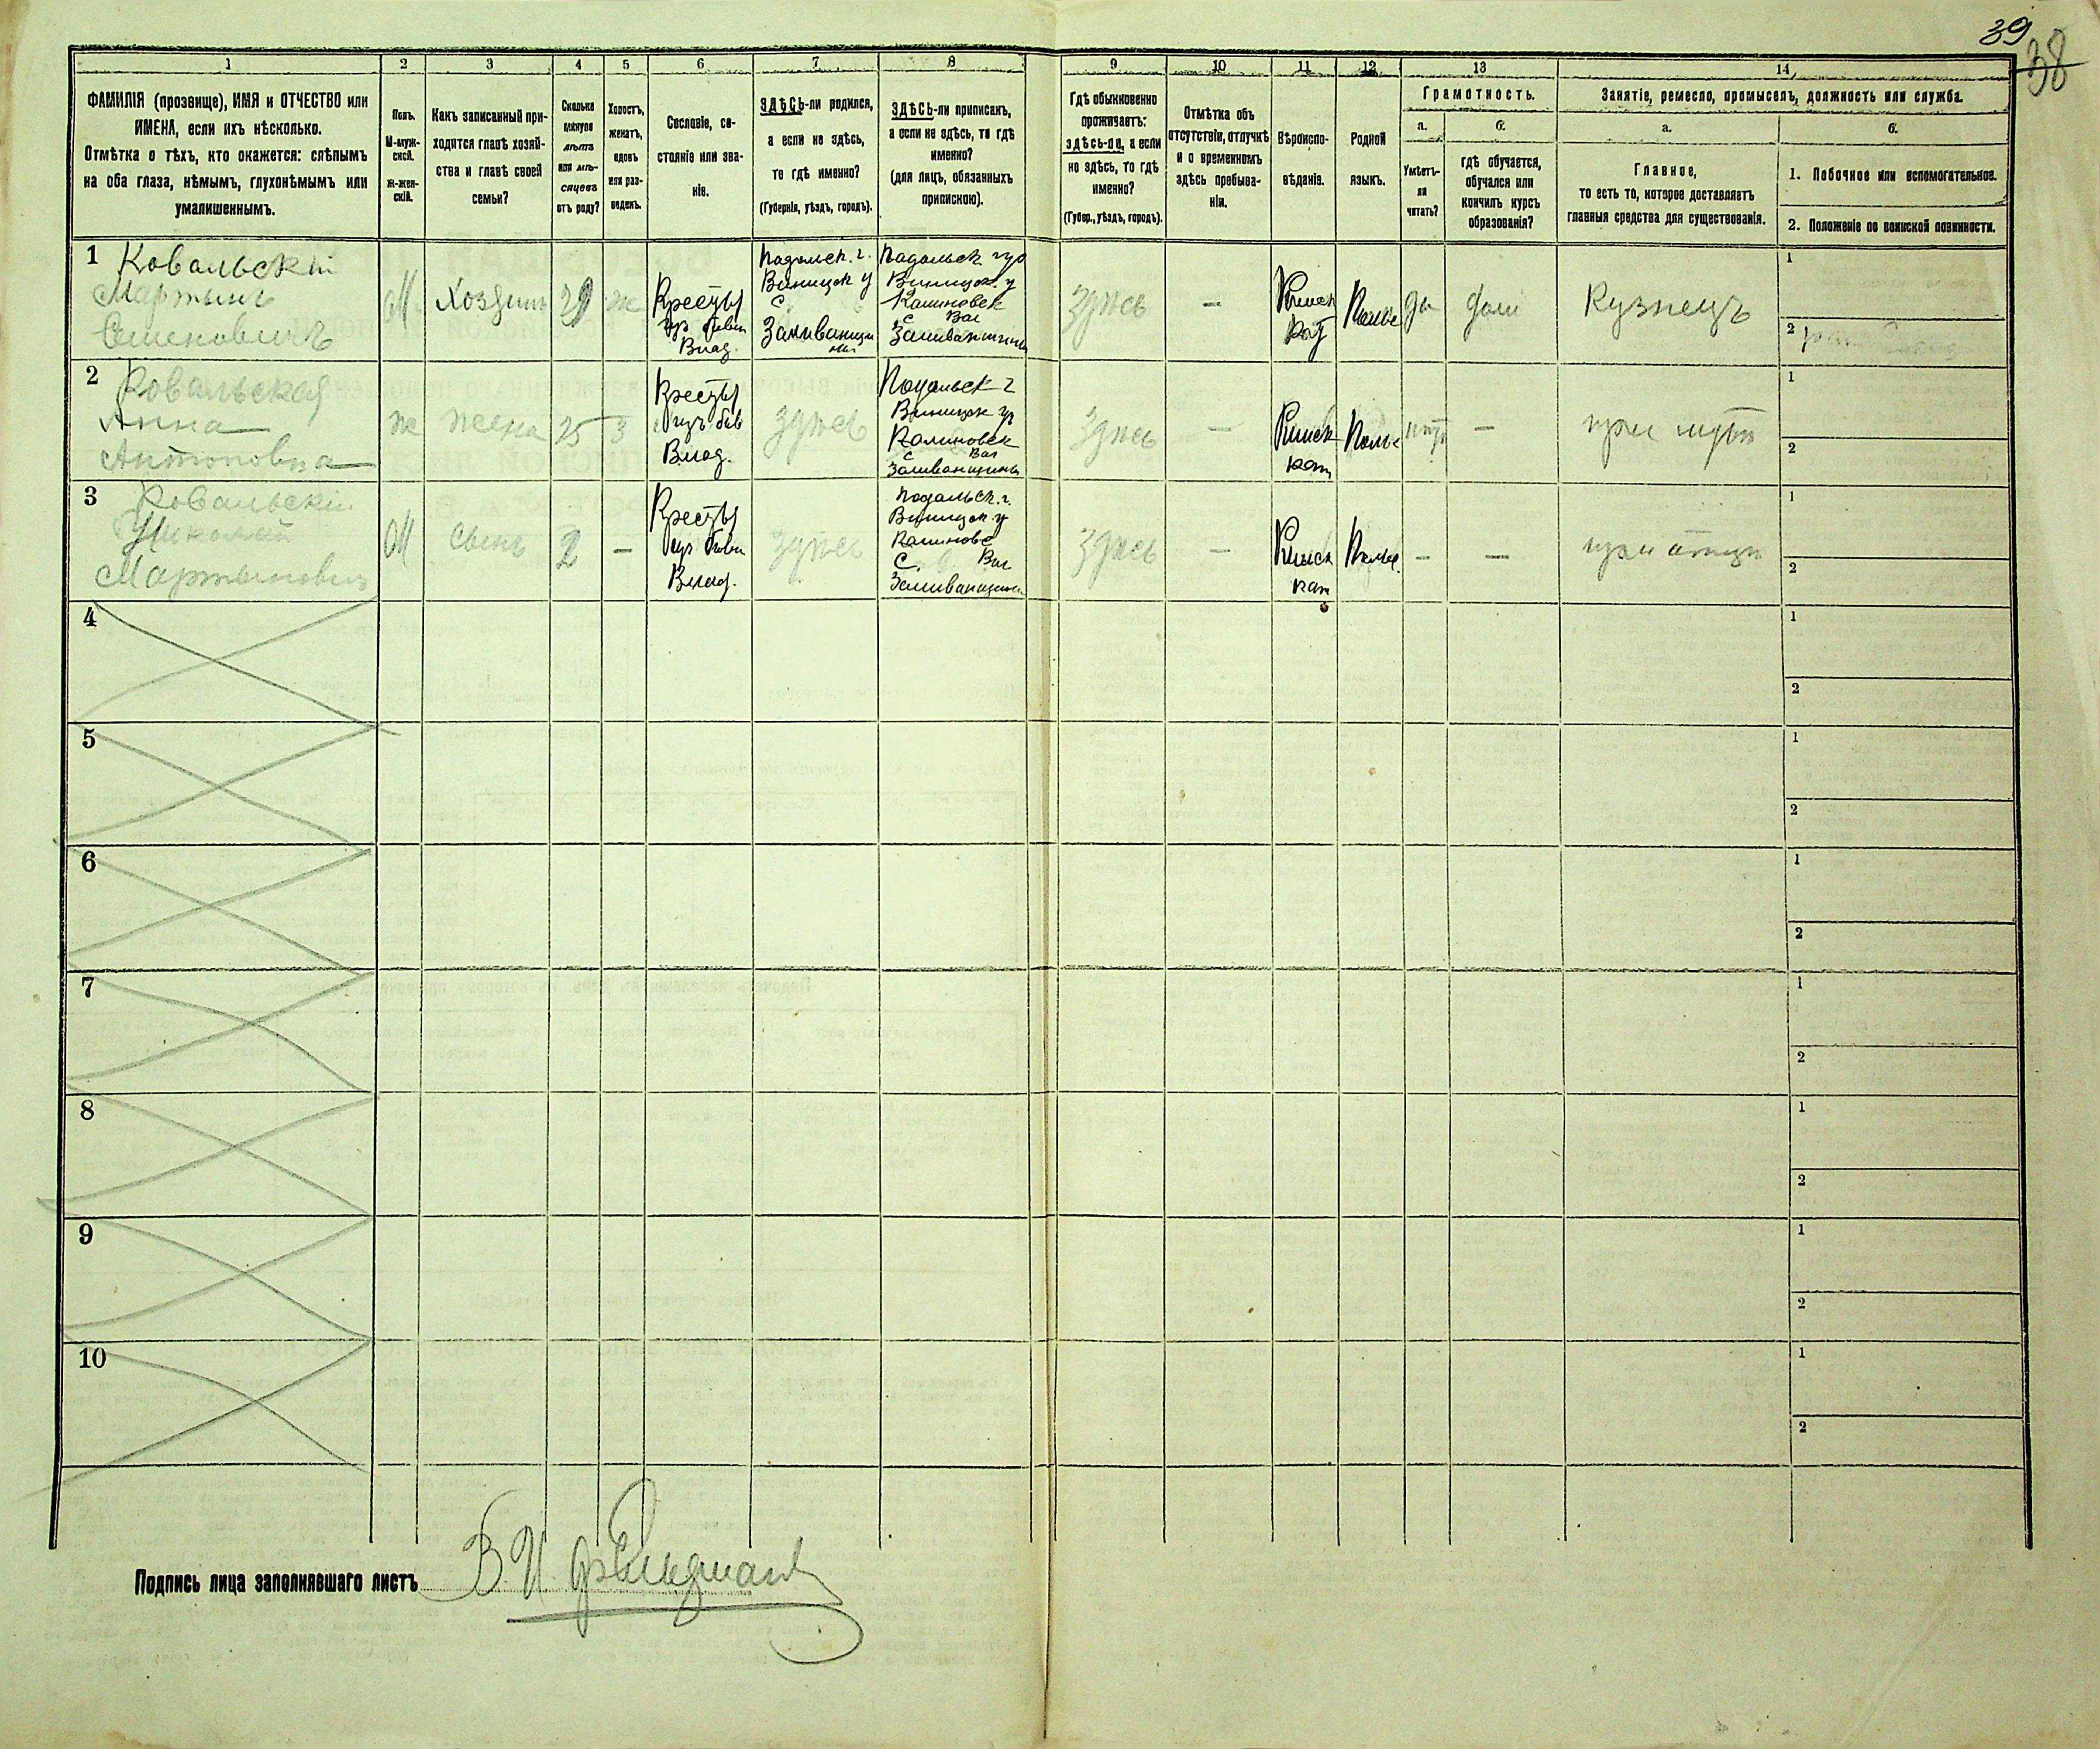 39
38
1
2
3
4
5
6
7
8
9
10
11
12
13
14
ФАМИЛІЯ (прозвище), ИМЯ и ОТЧЕСТВО или
ИМЕНА, если ихъ нѣсколько.
Отмѣтка о тѣхъ, кто окажется: слѣпымъ
на оба глаза, нѣмымъ, глухонѣмымъ или
умалишеннымъ.
Полъ.
М-муж-
ской.
ж-жен-
скій.
Какъ записанный при-
ходится главѣ хозяй-
ства и главѣ своей
семьи?
Сколько
минуло
лѣтъ
или мѣ-
сяцевъ
отъ роду?
Холостъ,
женатъ,
вдовъ
или раз-
веденъ.
Сословіе, со-
стояніе или зва-
ніе.
ЗДѢСЬ-ли родился,
а если не здѣсь,
то гдѣ именно?
(Губернія, уѣздъ, городъ).
ЗДѢСЬ-ли приписанъ,
а если не здѣсь, то гдѣ
именно?
(для лицъ, обязанныхъ
припискою).
Гдѣ обыкновенно
проживаетъ:
здѣсь-ли, а если
не здѣсь, то гдѣ
именно?
(Губер., уѣздъ, городъ).
Отмѣтка объ
отсутствіи, отлучкѣ
и о временномъ
здѣсь пребыва-
ніи.
Вѣроиспо-
вѣданіе.
Родной
языкъ.
Грамотность.
а.
Умѣетъ-
ли
читать?
б.
гдѣ обучается,
обучался или
кончилъ курсъ
образованія?
Занятіе, ремесло, промыселъ, должность или служба.
а.
Главное,
то есть то, которое доставляетъ
главныя средства для существованія.
б.
1. Побочное или вспомогательное.
2. Положеніе по воинской повинности.
1
Ковальскій
Мартынъ
Семеновичъ
М
Хозяинъ
29
ж
Кресты
бывш
Влад.
Подольск. г.
Виницк у
С
Подольск губ
Виницк. у
Калиновск
С Вол
здѣсь
—
Римск
кат
Польс
да
дома
Кузнецъ
1
2
2
Ковальская
Анна
Антоновна
ж
жена
25
З
Кресты
быв
Влад.
здѣсь
Подольск г
Виницк у
Калиновск
С Вол
Заливанщина
здѣсь
—
Римск
кат
Польс
нѣт
—
при мужѣ
1
2
3
Ковальскій
Николай
Мартынович
М
Сынъ
2
—
Кресты
бывш
Влад.
здѣсь
Подольск. г.
Виницк. у
Калиновс
С. Вол
Заливанщина
здѣсь
—
Римск
кат
Польс.
—
—
при отцѣ
1
2
4
1
2
5
1
2
6
1
2
7
1
2
8
1
2
9
1
2
10
1
2
Подпись лица заполнявшаго листъ